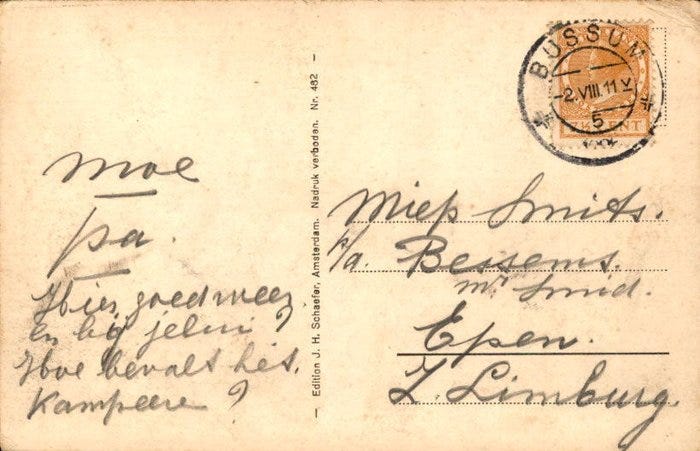 BUSSUM
2.VIII.11 V
5
7½ CENT
moe
pa.
Hier goed weer
en bij jelui?
Hoe bevalt het.
Kampeere?
Edition J. H. Schaefer, Amsterdam. Nadruk verboden. Nr. 482
Miep Smits.
p/a. Bessems.
mr Smid.
Epen.
Z. Limburg.